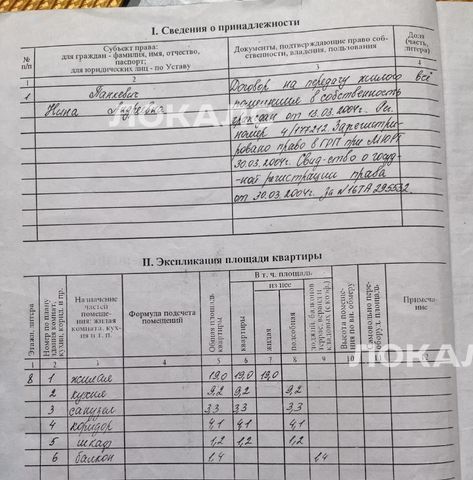 I. Сведения о принадлежности
№ п/п
Субъект права:
для граждан - фамилия, имя, отчество,
паспорт;
для юридических лиц - по Уставу
Документы, подтверждающие право соб-
ственности, владения, пользования
Доля
(часть,
литера)
1 2 3 4
1 Панкевич
Нина Андреевна
Договор на передачу жилого всё
помещения в собственность
граждан от 13.03.2004г. Рег.
номер 4/177212. Зарегистри-
ровано право в ГРП при МЮРТ
30.03.2004г. Свид-ство о госуд-
ной регистрации права
от 30.03.2004г. за №16ТА 295532
ЛОКАЛ
II. Экспликация площади квартиры
Этажи, литера
Номер по плану
здания комнат,
кухни, корид. и пр.
Назначение
частей
помеще-
ния: жилая
комната, кух-
ня и т. п.
Формула подсчета
помещений
Общая площадь
квартиры
В т. ч. площадь
квартиры
из нее
жилая
подсобная
лоджий, балконов
террас, веранд и
кладовых (с коэф.)
Высота помеще-
ния по вн. обмеру
Самовольно пере-
оборуд. площадь
Примеча-
ние
1 2 3 4 5 6 7 8 9 10 11 12
8 1 жилая 19,0 19,0 19,0
2 кухня 9,2 9,2 9,2
3 санузел 3,3 3,3 3,3
4 коридор 4,1 4,1 4,1
5 шкаф 1,2 1,2 1,2
6 балкон 1,4 1,4
ЛОКАЛ